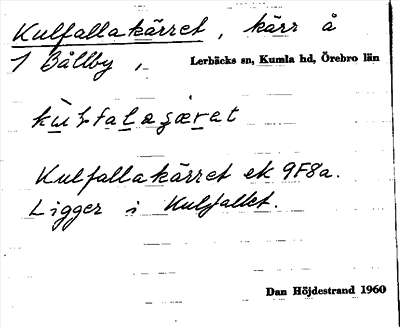 Kulfallakärret, kärr å
1 Bållby, Lerbäcks sn, Kumla hd, Örebro län
Kulfallakärret ek 9F8a.
Ligger i Kulfallet.
Dan Höjdestrand 1960